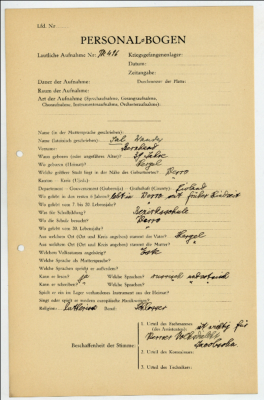 Lfd. Nr.
PERSONAL-BOGEN
Lautliche Aufnahme Nr.: PK 416
Kriegsgefangenenlager:
Datum:
Dauer der Aufnahme:
Zeitangabe:
Durchmesser der Platte:
Raum der Aufnahme:
Art der Aufnahme (Sprechaufnahme, Gesangsaufnahme,
Choraufnahme, Instrumentenaufnahme, Orchesteraufnahme):
Name (in der Muttersprache geschrieben):
Name (lateinisch geschrieben):
Vorname: Bernhard
Wann geboren (oder ungefähres Alter)? 34 Jahre
Wo geboren (Heimat)?
Welche größere Stadt liegt in der Nähe des Geburtsortes? Werro
Kanton — Kreis (Ujedz):
Departement — Gouvernement (Gubernija) — Grafschaft (County): Livland
Wo gelebt in den ersten 6 Jahren? Lebt in Werro seit früher Kindheit
Wo gelebt vom 7. bis 20. Lebensjahr?
Was für Schulbildung?
Wo die Schule besucht? Werro
Wo gelebt vom 20. Lebensjahr?
Aus welchem Ort (Ort und Kreis angeben) stammt der Vater?
Aus welchem Ort (Ort und Kreis angeben) stammt die Mutter?
Welchem Volksstamm angehörig? Este
Welche Sprache als Muttersprache?
Welche Sprachen spricht er außerdem?
Kann er lesen? ja Welche Sprachen?
Kann er schreiben? Welche Sprachen?
Spielt er ein im Lager vorhandenes Instrument aus der Heimat?
Singt oder spielt er moderne europäische Musikweisen?
Religion: Beruf: Schlosser
Beschaffenheit der Stimme:
1. Urteil des Fachmannes
(des Assistenten): ist wichtig für
2. Urteil des Kommissars:
3. Urteil des Technikers: